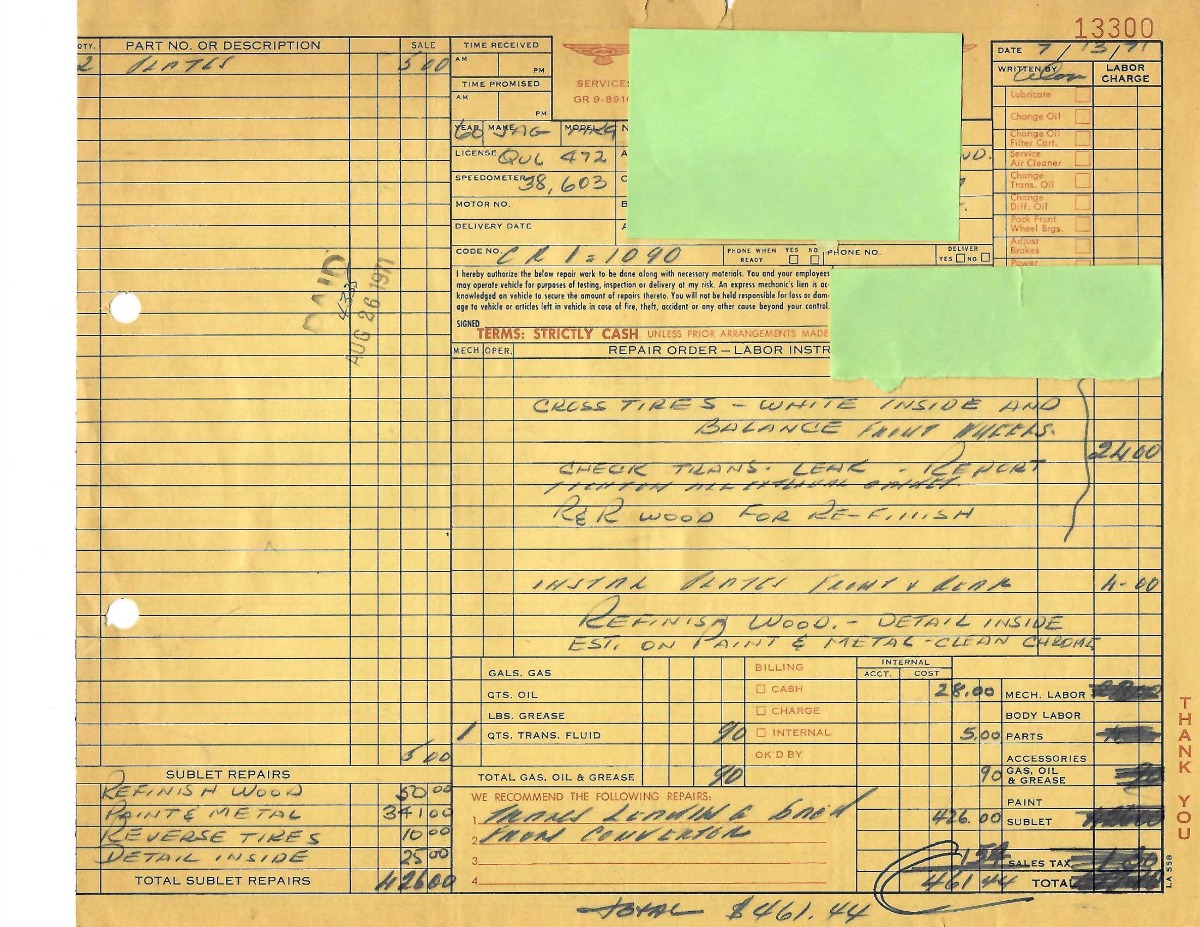 13300
QTY. PART NO. OR DESCRIPTION SALE
2 PLATES 5 00
TIME RECEIVED
AM PM
TIME PROMISED
AM PM
SERVICES
GR 9-891
DATE 7/13/71
WRITTEN BY LABOR CHARGE
Lubricate
Change Oil
Change Oil Filter Cart.
Service Air Cleaner
Change Trans. Oil
Change Diff. Oil
Pack Front Wheel Brgs.
Adjust Brakes
Power
YEAR 60 MAKE JAG MODEL MK9
LICENSE QUL 472
SPEEDOMETER 38,603
MOTOR NO.
DELIVERY DATE
CODE NO. CR 1=1090
PHONE WHEN READY YES NO
PHONE NO.
DELIVER YES NO
PAID
AUG 26 1971
I hereby authorize the below repair work to be done along with necessary materials. You and your employees
may operate vehicle for purposes of testing, inspection or delivery at my risk. An express mechanic's lien is ac-
knowledged on vehicle to secure the amount of repairs thereto. You will not be held responsible for loss or dam-
age to vehicle or articles left in vehicle in case of fire, theft, accident or any other cause beyond your control.
SIGNED
TERMS: STRICTLY CASH UNLESS PRIOR ARRANGEMENTS MADE
MECH OPER. REPAIR ORDER—LABOR INSTR
CROSS TIRES - WHITE INSIDE AND
BALANCE FRONT WHEELS.
24 00
CHECK TRANS. LEAK - REPORT
TIGHTEN ALL EXTERNAL
R&R WOOD FOR RE-FINISH
INSTAL PLATES FRONT & REAR 4-00
REFINISH WOOD. - DETAIL INSIDE
EST. ON PAINT & METAL-CLEAN CHROME
GALS. GAS
QTS. OIL
LBS. GREASE
1 QTS. TRANS. FLUID 90
TOTAL GAS, OIL & GREASE 90
BILLING
CASH
CHARGE
INTERNAL
OK'D BY
INTERNAL
ACCT. COST
28.00 MECH. LABOR
BODY LABOR
5.00 PARTS
ACCESSORIES
90 GAS, OIL & GREASE
PAINT
426.00 SUBLET
1 54 SALES TAX
461 44 TOTAL
5 00
SUBLET REPAIRS
REFINISH WOOD 50 00
PAINT & METAL 341 00
REVERSE TIRES 10 00
DETAIL INSIDE 25 00
TOTAL SUBLET REPAIRS 426 00
WE RECOMMEND THE FOLLOWING REPAIRS:
1 TRANS LEAKING BAD
2 FROM CONVERTOR
3
4
TOTAL $461.44
THANK YOU
LA 558